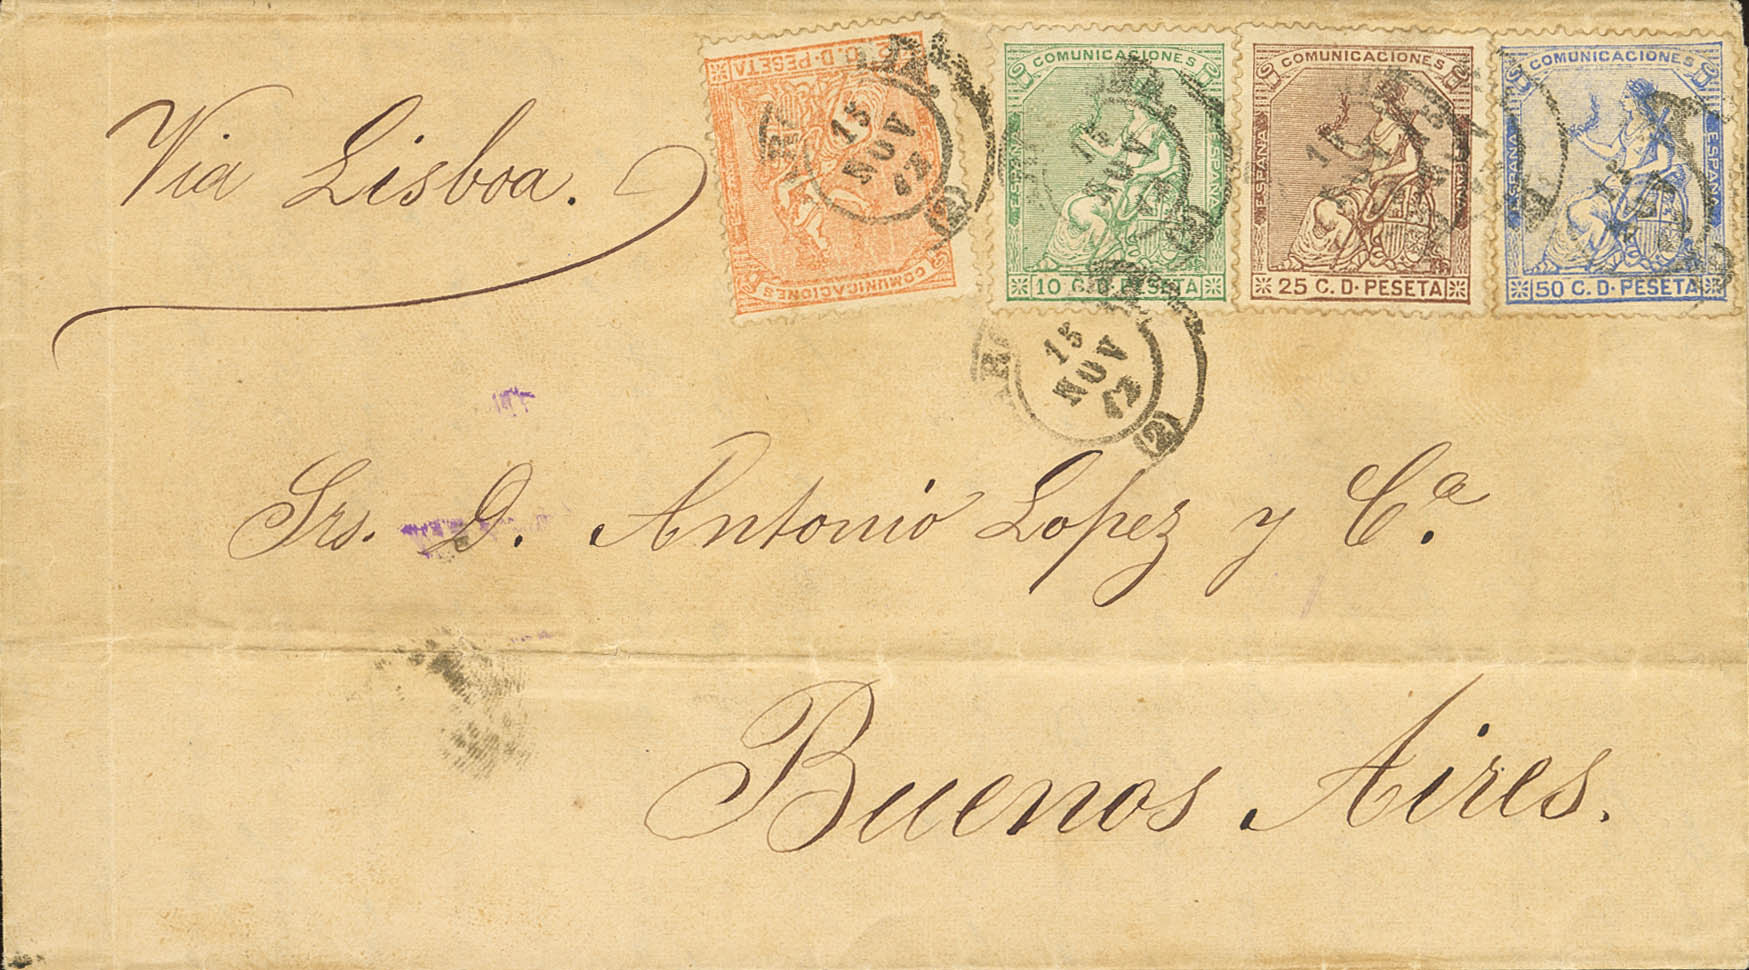 Via Lisboa.
COMUNICACIONES
D. PESETA
COMUNICACIONES
ESPAÑA
ESPAÑA
10 C. D. PESETA
COMUNICACIONES
ESPAÑA
ESPAÑA
25 C. D. PESETA
COMUNICACIONES
ESPAÑA
ESPAÑA
50 C. D. PESETA
15
NOV
(2)
15
NOV
(2)
Srs. D. Antonio Lopez y Cª.
Buenos Aires.